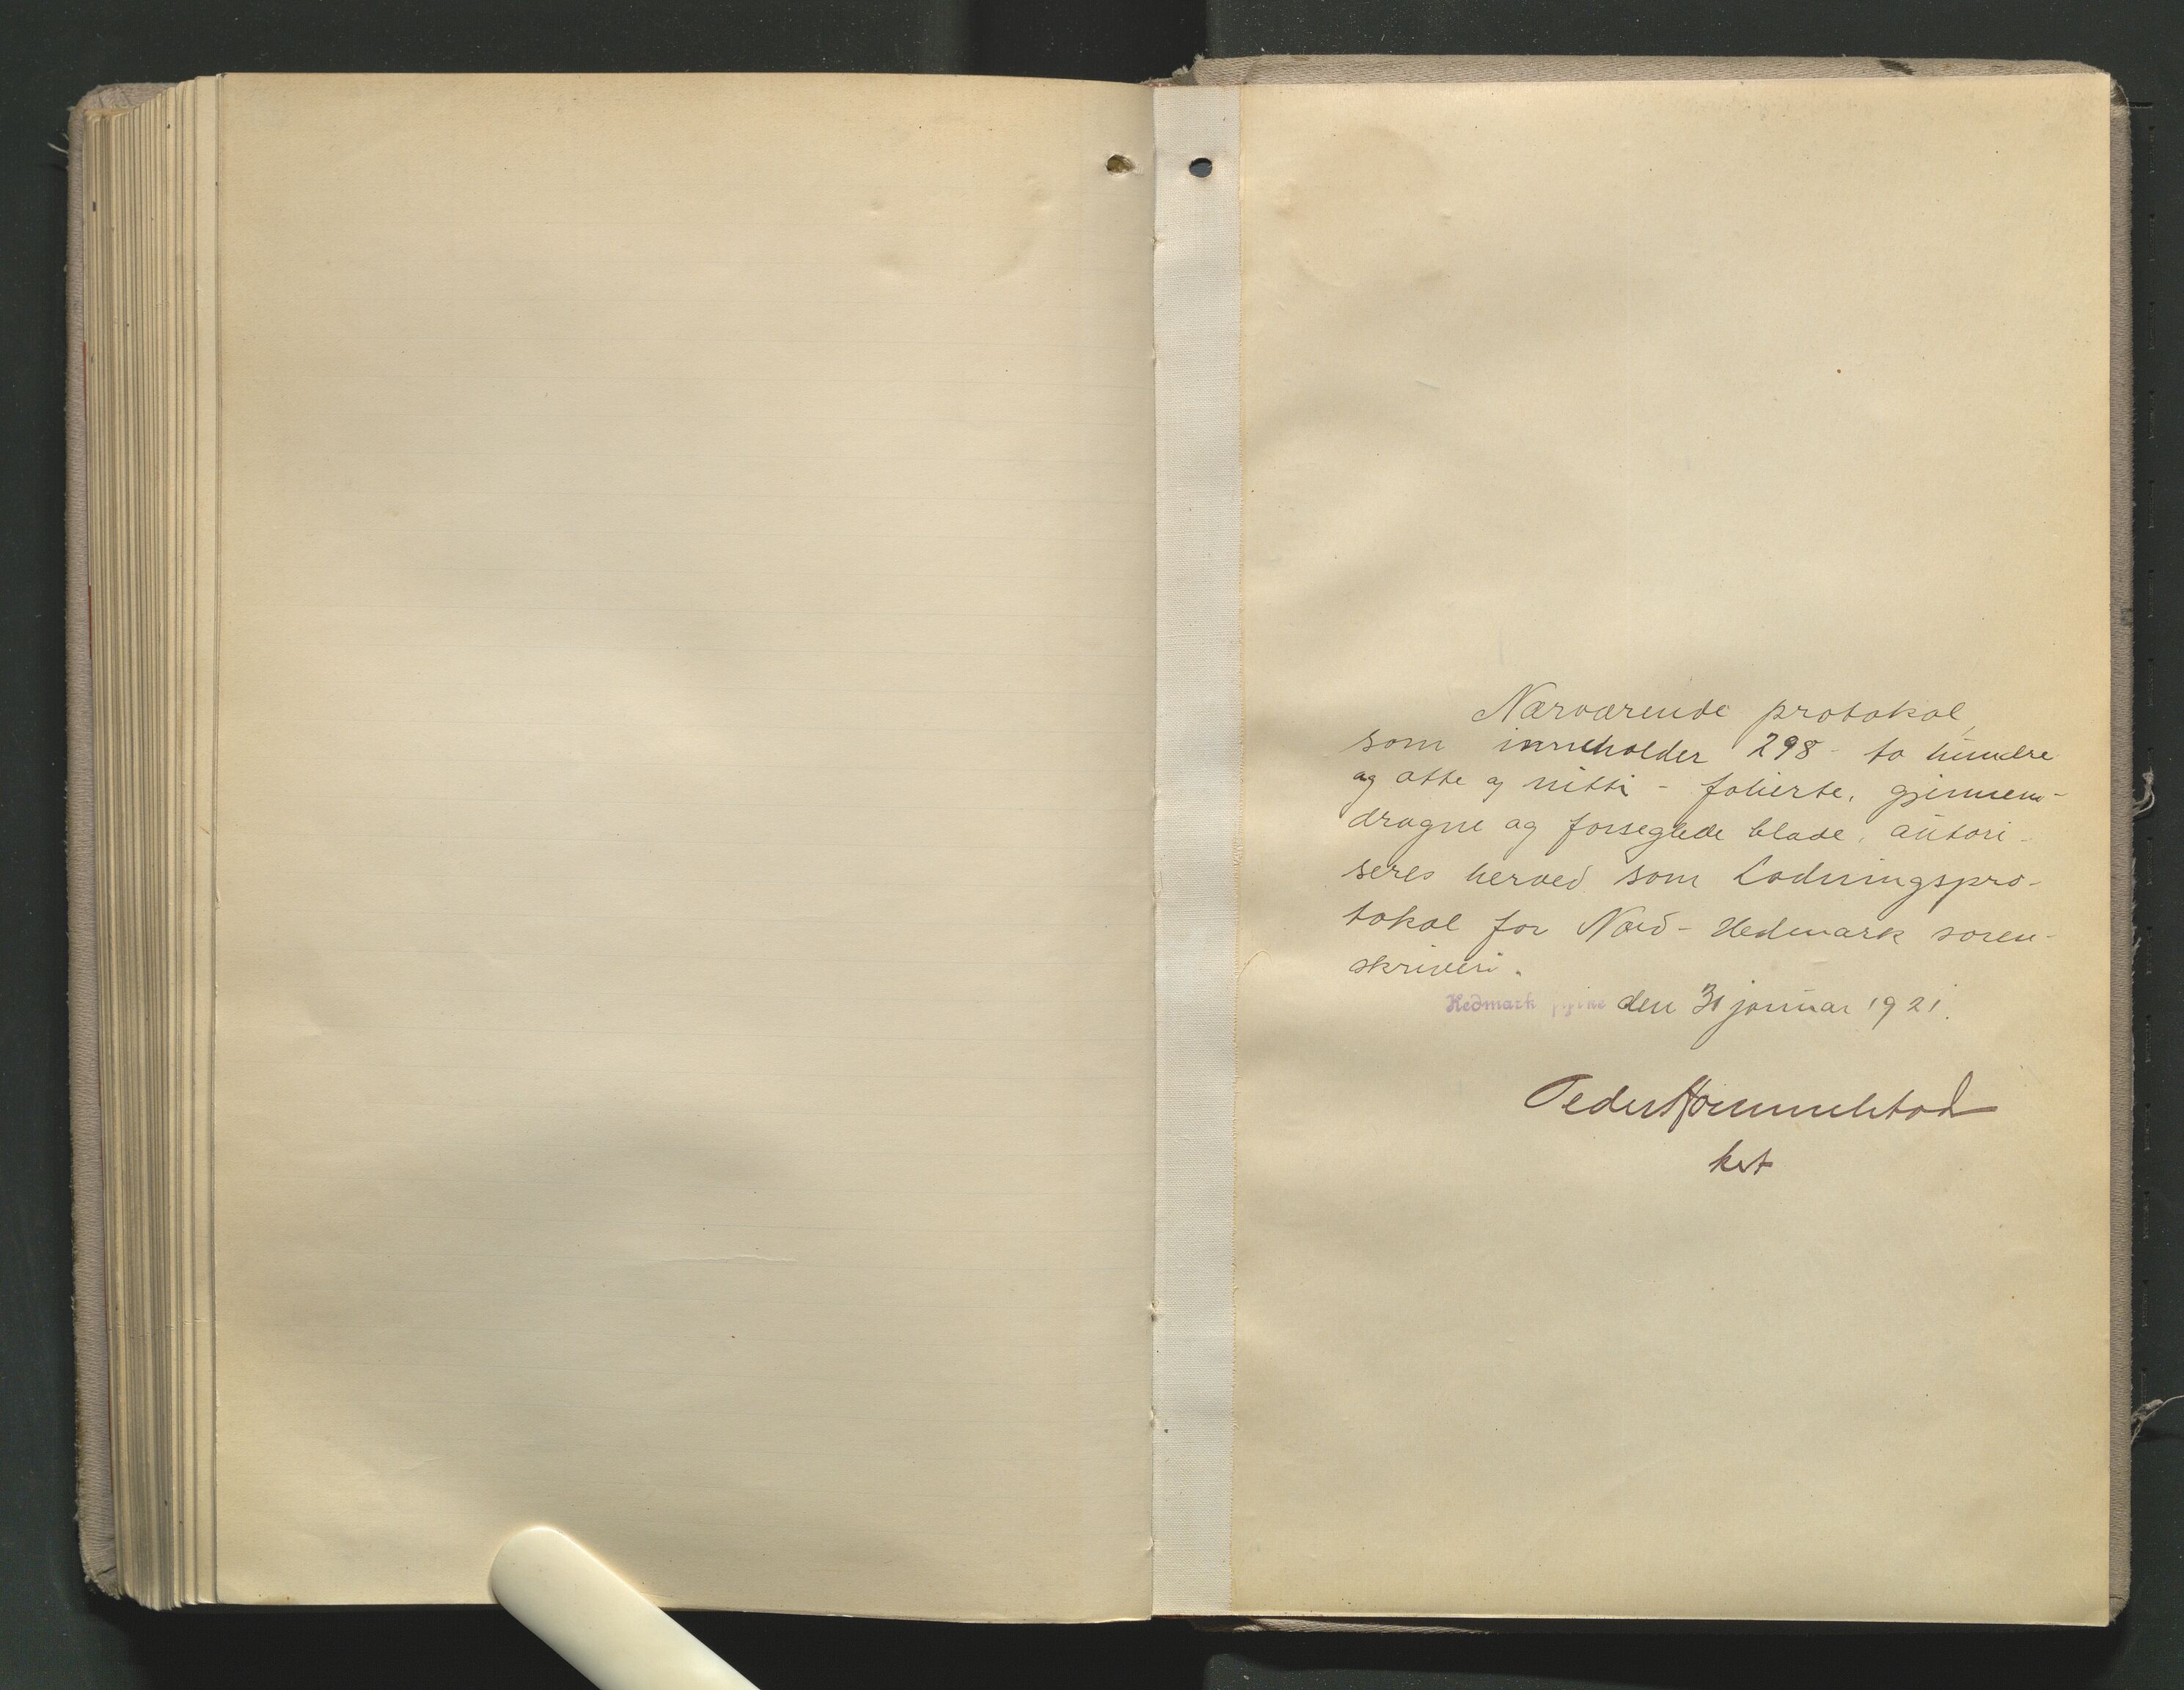 Nærværende protokol,
som inneholder 298 - to hundre
og otte og nitti - folierte, gjennem-
dragne og forseglede blade, autori-
seres herved som Lodningspro-
tokol for Nord-Hedmark soren-
skriveri.
Hedmark fylke den 31 januar 1921.
Peder
kst